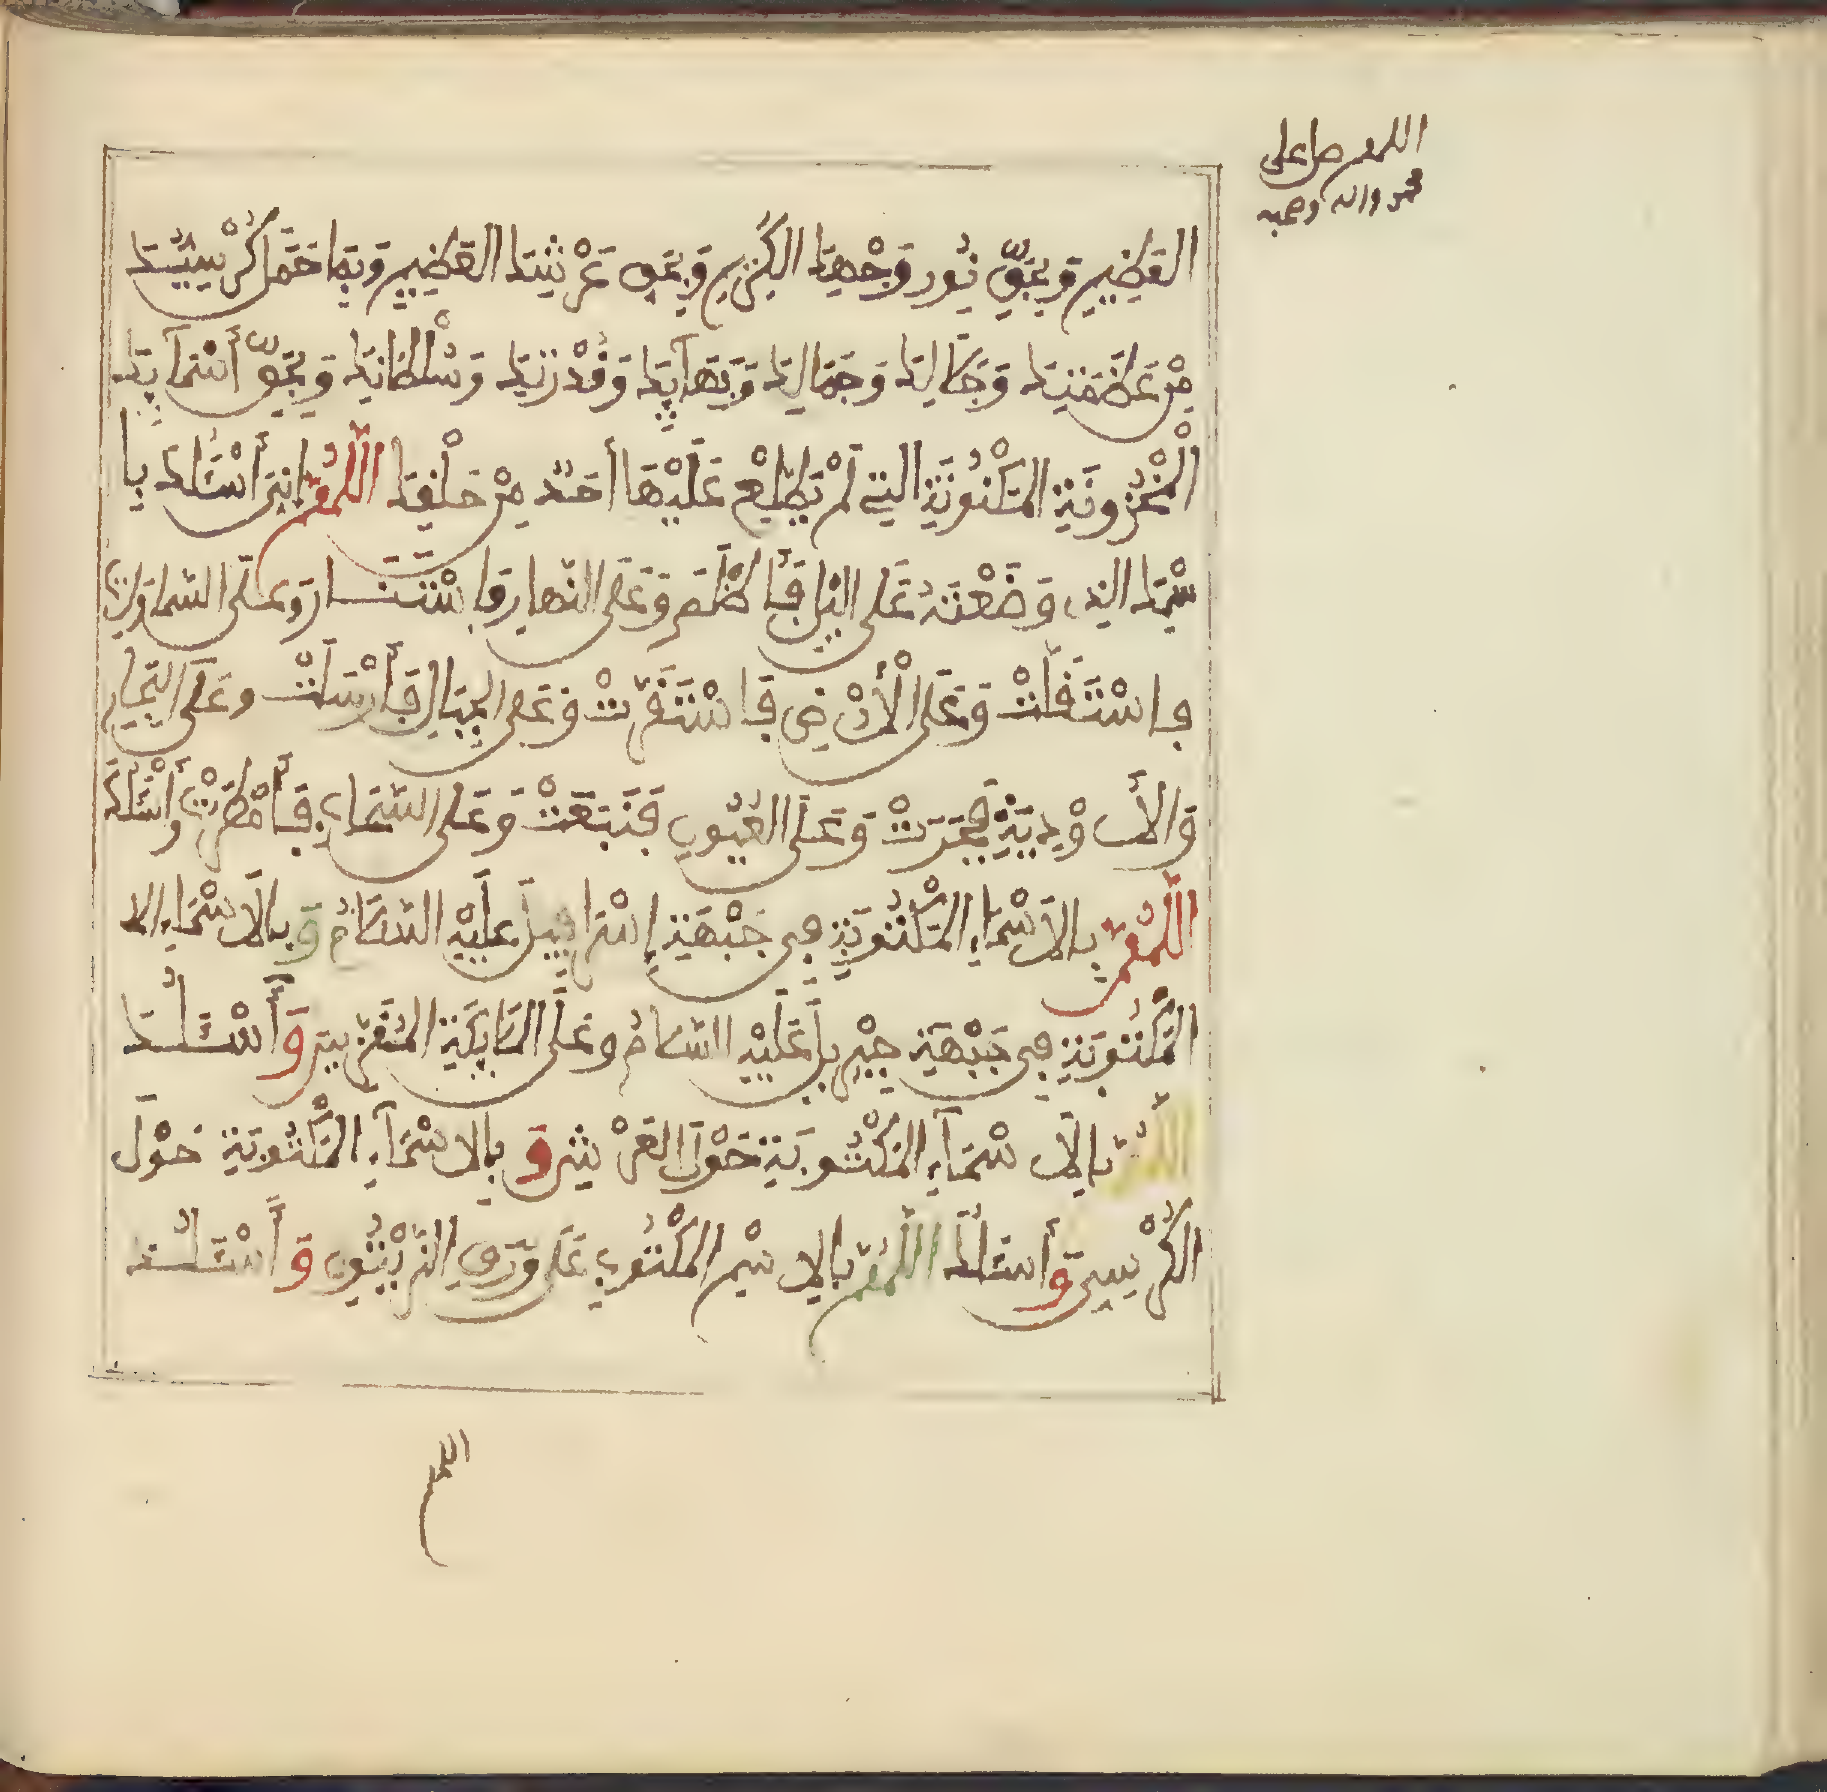 اللهم صل على
محمد واله وصحبه
الْعَظِيمِ وَبِحَقِّ نُورِ وَجْهِكَ الْكَرِيمِ وَبِحَقِّ عَرْشِكَ الْعَظِيمِ وَبِمَا حَمَلَ كُرْسِيُّكَ
مِنْ عَظَمَتِكَ وَجَلَالِكَ وَجَمَالِكَ وَبَهَآئِكَ وَقُدْرَتِكَ وَسُلْطَانِكَ وَبِحَقِّ أَسْمَآئِكَ
الْمَخْزُونَةِ الْمَكْنُونَةِ الَّتِي لَمْ يَطَّلِعْ عَلَيْهَا أَحَدٌ مِنْ خَلْقِكَ اللَّهُمَّ إِنِّي أَسْأَلُكَ بِا
سْمِكَ الَّذِي وَضَعْتَهُ عَلَى الَّيْلِ فَأَظْلَمَ وَعَلَى النَّهَارِ فَاسْتَنَارَ وَعَلَى السَّمَاوَاتِ
فَاسْتَقَلَّتْ وَعَلَى الْأَرْضِ فَاسْتَقَرَّتْ وَعَلَى الْجِبَالِ فَأَرْسَتْ وَعَلَى الْبِحَارِ
وَالْأَوْدِيَةِ فَجَرَتْ وَعَلَى الْعُيُونِ فَنَبَعَتْ وَعَلَى السَّمَاءِ فَأَمْطَرَتْ وَأَسْأَلُكَ
اللَّهُمَّ بِالْأَسْمَاءِ الْمَكْتُوبَةِ فِي جَبْهَةِ إِسْرَافِيلَ عَلَيْهِ السَّلَامُ وَبِالْأَسْمَاءِ الا
الْمَكْتُوبَةِ فِي جَبْهَةِ جِبْرِيلَ عَلَيْهِ السَّلَامُ وَعَلَى الْمَلَائِكَةِ الْمُقَرَّبِينَ وَأَسْأَلُكَ
اللَّهُمَّ بِالْأَسْمَآءِ الْمَكْتُوبَةِ حَوْلَ الْعَرْشِ وَبِالْأَسْمَآءِ الْمَكْتُوبَةِ حَوْلَ
الْكُرْسِيِّ وَأَسْأَلُكَ اللَّهُمَّ بِالْإِسْمِ الْمَكْتُوبِ عَلَى وَرَقِ الزَّيْتُونِ وَأَسْأَلُكَ
اللهم